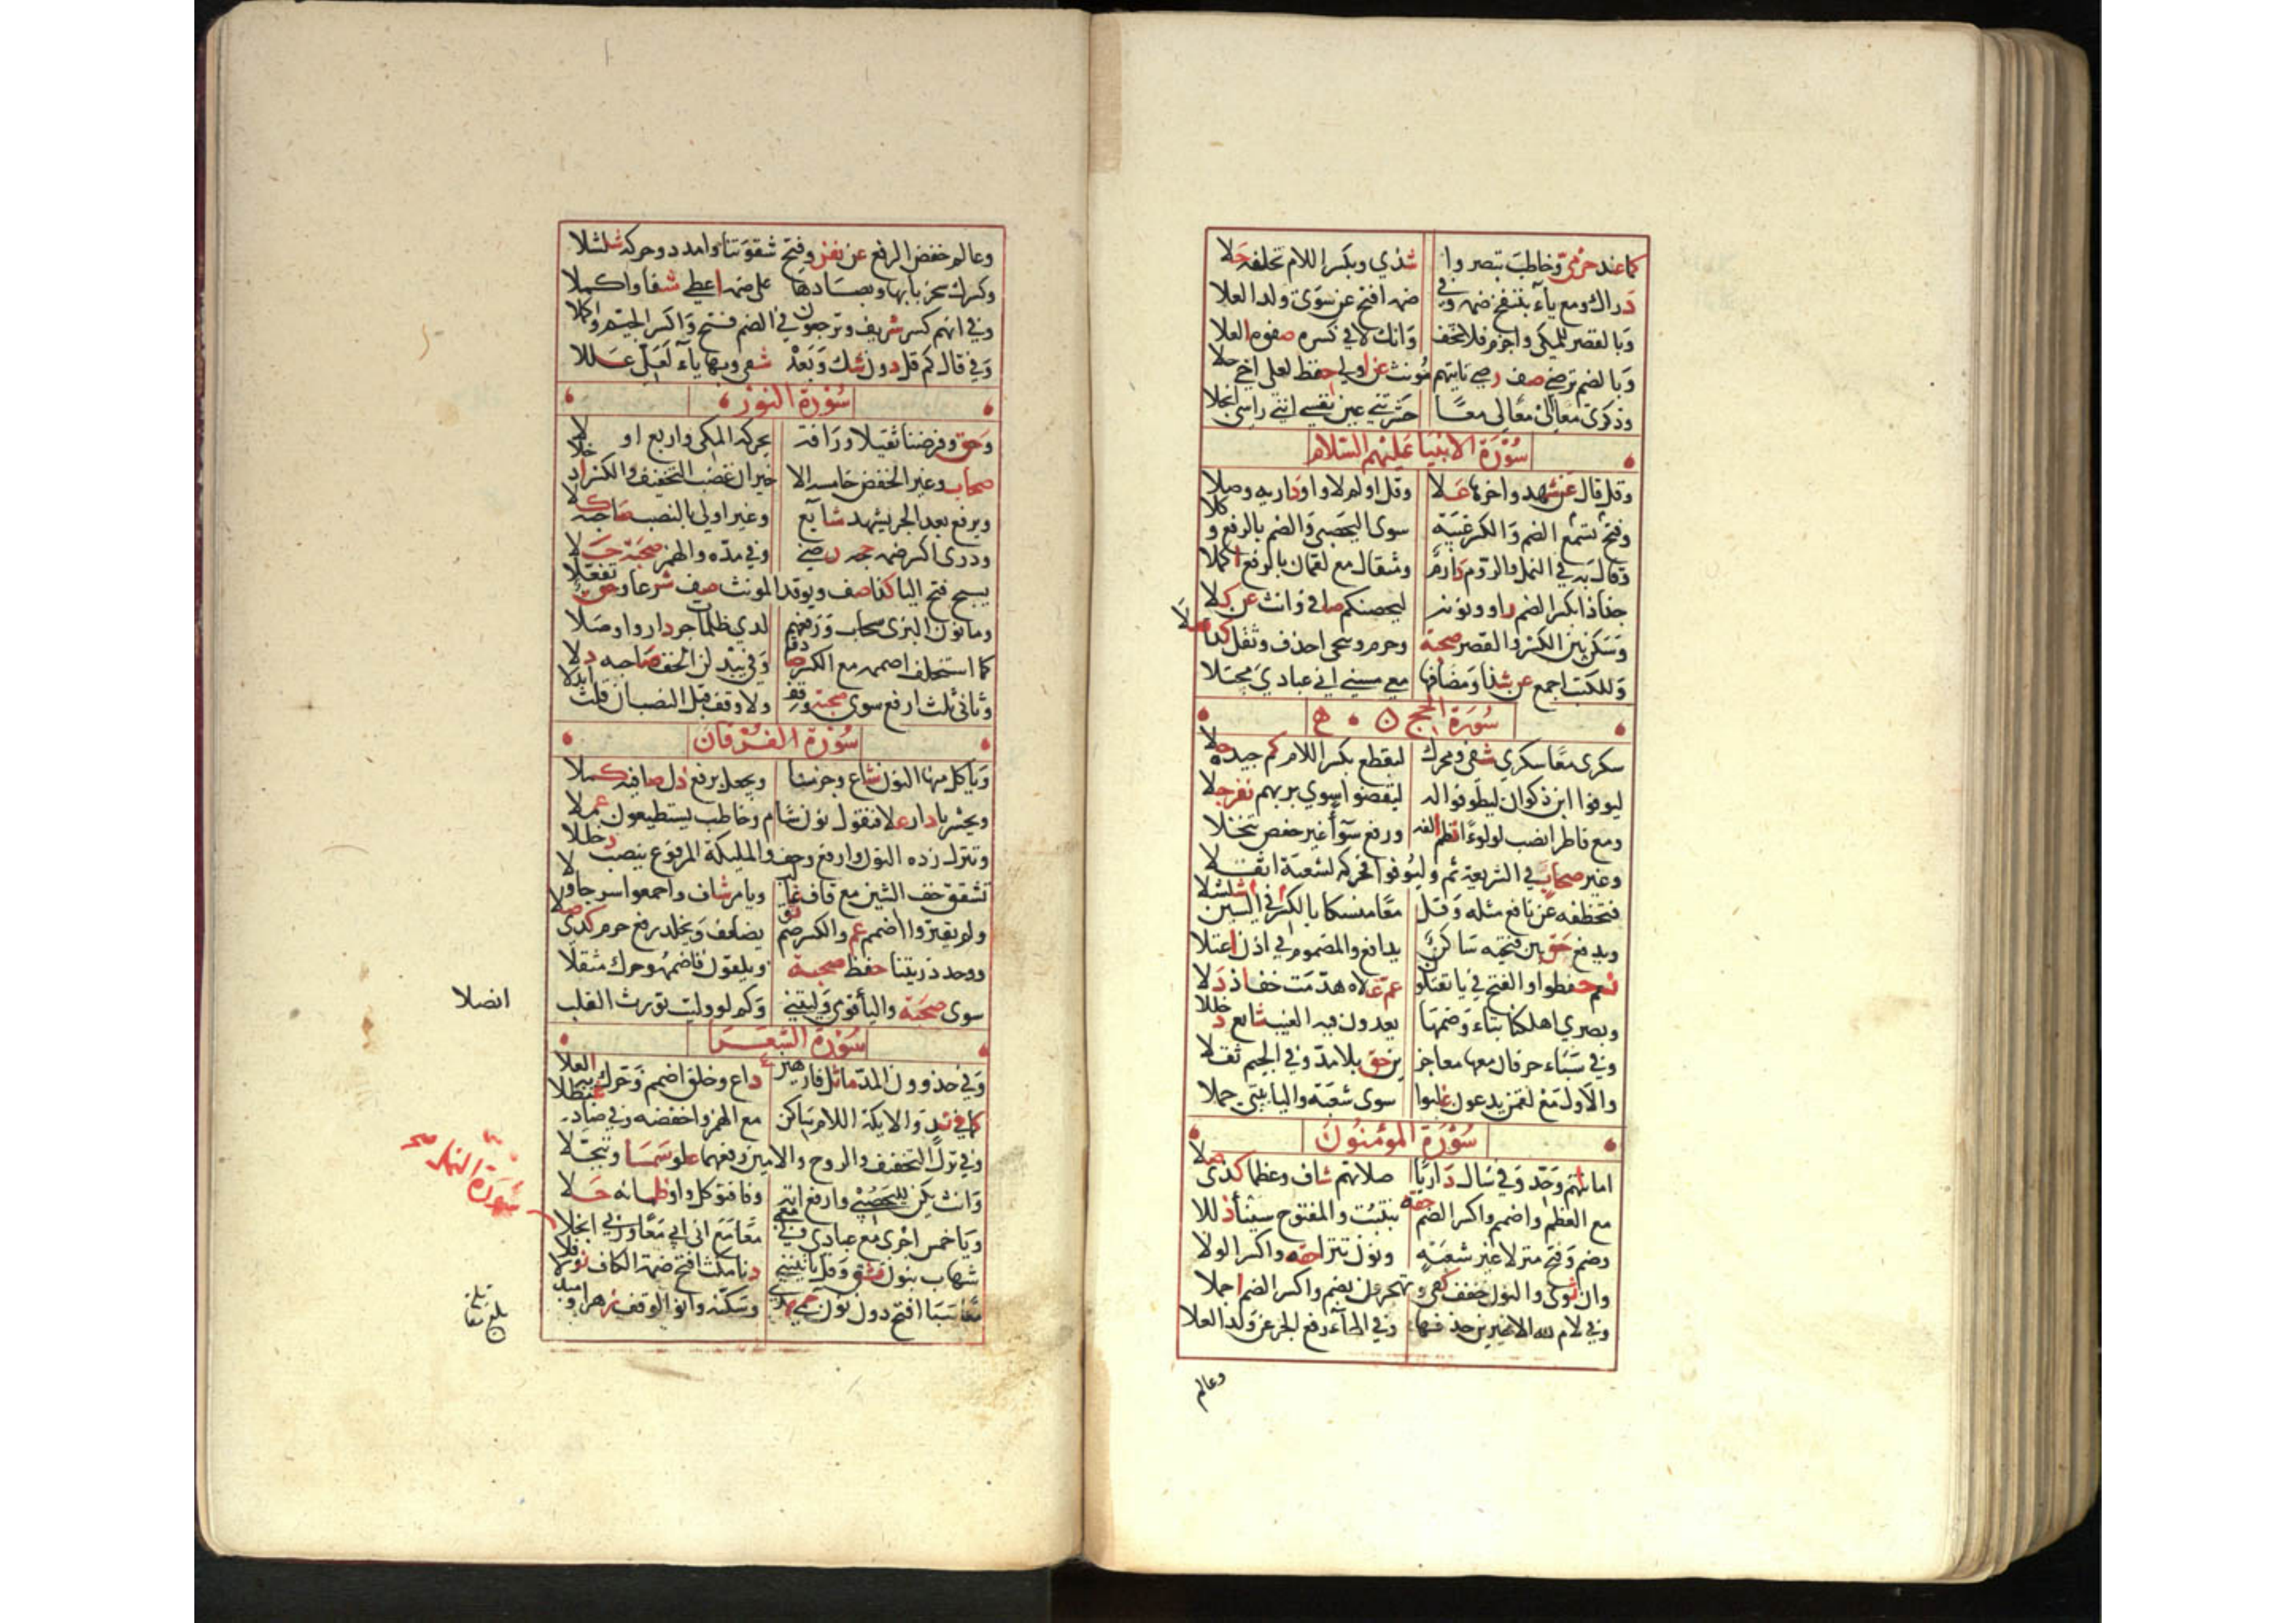 كما عند حرمي وخاطب تبصروا شذي وبكسر اللام تخلفه حلا
دراك ومع ياء بننفخ ضمه وفي ضمه افتح عن سوى ولد العلا
وبالقصر للمكي واجزم فلا يخف وانك لا في كسره صفوه العلا
وبالضم ترضى صف رضي ياتهم مونث عن اولي حفظ لعلي اخي حلا
وذكري معا اني معا لي معا حشرتني عين نفسي انني راسي انجلا
سورة الانبيا عليهم السلام
وقل قال عن شهد واخرها علا وقل اولم لا واو داريه وصلا
وفتح تسمع الضم والكسر غيبة سوى اليحصبي والضم بالرفع وكلا
وقال به في النمل والروم دارم ومثقال مع لقمان بالرفع اكملا
جذاذا بكسر الضم راو ونونه ليحصنكم صافى وانث عن كلا
وسكن بين الكسر والقصر صحبة وحرم وننجي احذف وثقل كذي صلا
وللكتب اجمع عن شذا ومضافها معي مسني اني عبادي مجتلا
سورة الحج
سكرى معا سكرى شفى ومحرك ليقطع بكسر اللام كم جيده حلا
ليوفوا ابن ذكوان ليطوفوا له ليقضوا سوى بزيهم نفر جلا
ومع فاطر انصب لولوءا نظم الفه ورفع سواء غير حفص تنخلا
وغير صحاب في الشريعة ثم وليوفوا فحركه لشعبة اثقلا
فتخطفه عن نافع مثله وقل معا منسكا بالكسر في السين شلشلا
ويدفع حق بين فتحيه ساكن يدافع والمضموم في اذن اعتلا
نعم حفظوا والفتح في يا تقاتلون عم علاه هدمت خف اذ دلا
وبصري اهلكنا بتاء وضمها يعدون فيه الغيب شايع دخللا
وفي سباء حرفان معها معاجزين حق بلا مد وفي الجيم ثقلا
والاول مع لقمن يدعون غلبوا سوى شعبة واليا بيتي جملا
سورة المؤمنون
اماناتهم وحد وفي سال داريا صلاتهم شاف وعظما كذي صلا
مع العظم واضمم واكسر الضم حقه بتنبت والمفتوح سيناء ذللا
وضم وفتح منزلا غير شعبة ونون تترا حقه واكسر الولا
وان ثوى والنون خفف كفى وتهجرون بضم واكسر الضم اجملا
وفي لام لله الاخيرين حذفها وفي الهاء رفع الجر عن ولد العلا
وعالم
وعالم خفض الرفع عن نفر وفتح شقوتنا وامدد وحركه شلشلا
وكسرك سخريا بها وبصادها على ضمه اعطى شفا واكملا
وفي انهم كسر شريف وترجعون في الضم فتح واكسر الجيم واكملا
وفي قال كم قل دون شك وبعده شفى وبها ياء لعلي عللا
سورة النور
وحق وفرضنا ثقيلا ورافة يحركه المكي واربع اولا
صحاب وغير الحفص خامسة الاخير ان غضب التخفيف والكسر ادخلا
ويرفع بعد الجر يشهد شايع وغير اولي بالنصب صاحبه كلا
ودري اكسر ضمه حجة رضي وفي مده والهمز صحبته حلا
يسبح فتح البا كذا صف ويوقد المونث صف شرعا وحق تفعلا
وما نون البزي سحاب ورفعهم لدى ظلمات جر دار واوصلا
كما استخلف اضممه مع الكسر صادقا وفي يبدلن الخف صاحبه دلا
وثاني ثلث ارفع سوى صحبة وقف ولا وقف قبل النصب ان قلت ابدلا
سورة الفرقان
وياكل منها النون شاع وجزمنا ويجعل برفع دل صافيه كملا
ويحشر يا دار علا فنقول نون شام وخاطب يستطيعون عملا
وننزل زده النون وارفع وخف والمليكة المرفوع ينصب دخللا
تشقق خف الشين مع قاف غالب ويامر شاف واجمعوا سرجا ولا
ولم يقتروا اضمم عم والكسر ضم ثق يضاعف ويخلد رفع جزم كذي صلا
ووحد ذريتنا حفظ صحبة ويلقون فاضممه وحرك مثقلا
سوى صحبة واليا قومي وليتني وكم لو وليت تورث القلب
انصلا
سورة الشعرا
وفي حذرون المد ما ثل فارهين ذاع وخلق اضمم وحرك به العلا
كما في ند والايكة اللام ساكن مع الهمز واخفضه وفي صاد غيطلا
وفي نزل التخفيف والروح والامين رفعهما علو سما وتبجلا
وانث يكن لليحصبي وارفع اية وفا فتوكل واو ظمانه حلا
ويا خمس اجري مع عبادي ولي معي معا مع ابي اني معا ربي انجلا
سورة النمل
شهاب بنون ثق وقل ياتينني دنا مكث افتح ضمة الكاف نوفلا
معا سبا افتح دون نون حمى هدى وسكنه وانو الوقف زهرا ومندلا
بلغ